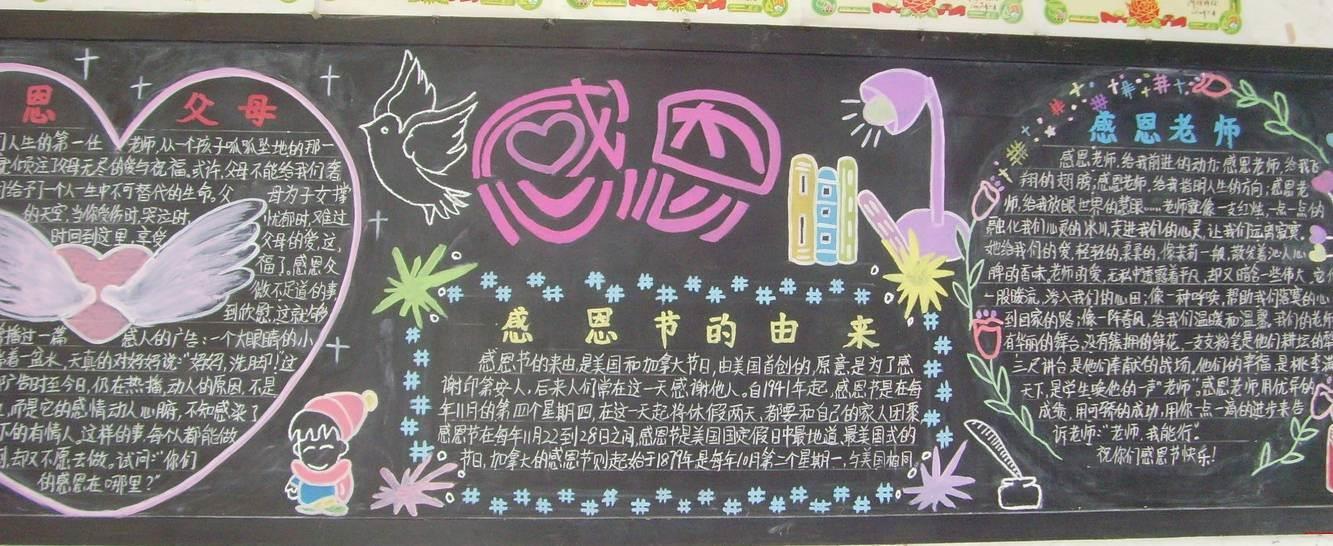 恩 父母
人生的第一任 老师,从一个孩子呱呱坠地的那一
倾注了父母无尽的爱与祝福.或许,父母不能给我们奢
给予了一个人一生中不可替代的生命。父 母为子女撑
的天空,当你受伤时,哭泣时 忧郁时,难过
时回到这里,享受 父母的爱,这,
福了。感恩父
做不足道的事
到欣慰,这就够
播过一篇 感人的广告:一个大眼睛的小
着一盆水,天真的对妈妈说:"妈妈,洗脚!"这
广告时至今日,仍在热播,动人的原因,不是
而是它的感情动人心腑,不知感染了
下的有情人,这样的事,每个人都能做
却又不愿去做。试问:"你们
的感恩在哪里?"
感恩
感恩节的由来
感恩节的来由是美国和加拿大节日,由美国首创的,原意是为了感
谢印第安人,后来人们常在这一天感谢他人。自1941年起,感恩节是在每
年11月的第四个星期四,在这一天起将休假两天,都要和自己的家人团聚
感恩节在每年11月22到28日之间,感恩节是美国国定假日中最地道、最美国式的
节日,加拿大的感恩节则起始于1879年是每年10月第二个星期一,与美国相同
感恩老师
感恩老师,给我前进的动力;感恩老师,给我
翔的翅膀;感恩老师,给我指明人生的方向;感恩老
师,给我放眼世界的慧眼……老师就像一支红烛,一点一点的
融化我们心灵的冰川,走进我们的心灵,让我们远离寂寞,
她给我们的爱,轻轻的,柔柔的,像茉莉一般,散发着沁人心
脾的香味,老师的爱,无私中透露着平凡,却又暗含一些伟大,它像
一股暖流,渗入我们的心田;像一种呼唤,帮助我们落寞的心
到回家的路;像一阵春风,给我们温暖和温馨。我们的老师
有华丽的舞台,没有簇拥的鲜花,一支支粉笔是他们耕耘的犁
三尺讲台,是他们奉献的战场,他们的幸福,是桃李满
天下,是学生唤他的一声"老师"。感恩老师,用优异的
成绩,用可夸的成功,用你一点一滴的进步来告
诉老师:"老师,我能行"。
祝你们感恩节快乐!